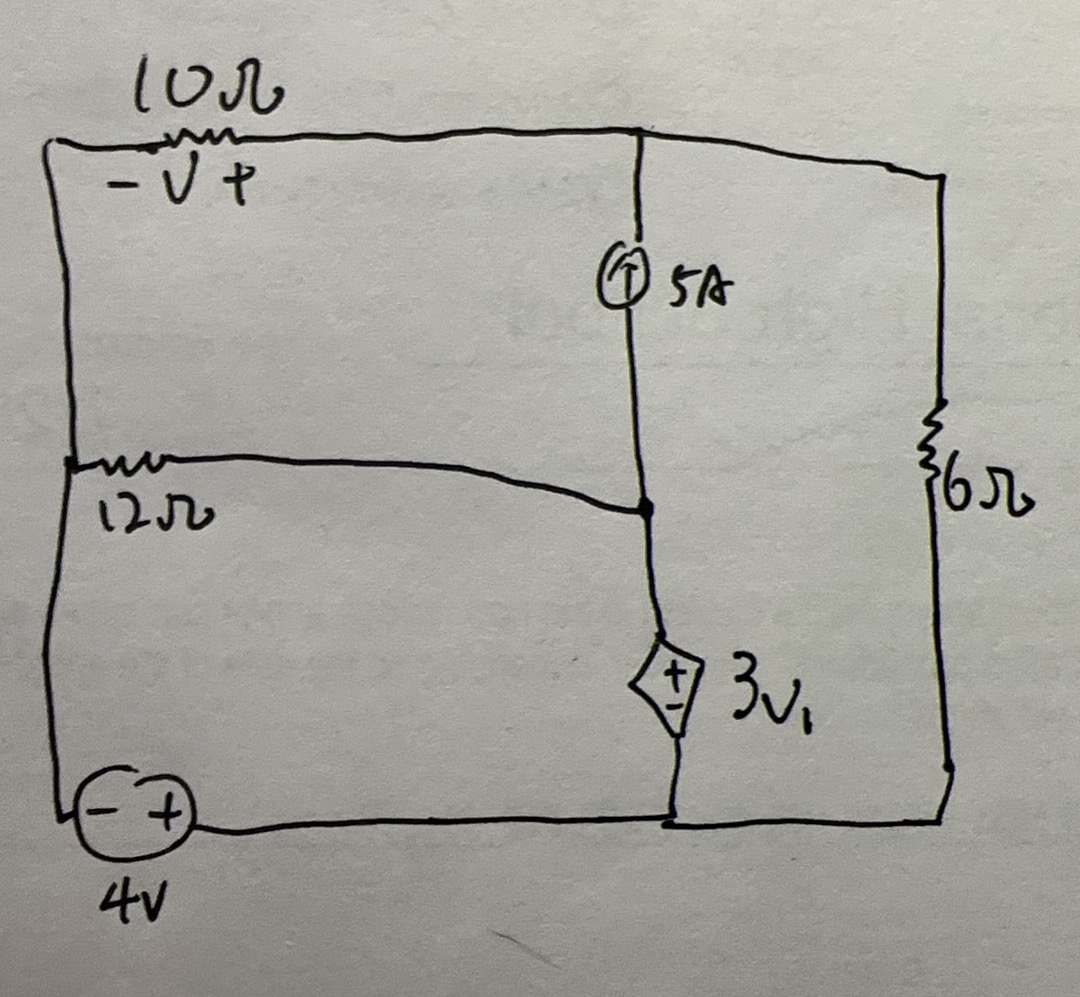 10Ω
- V +
5A
12Ω
6Ω
+
-
3v₁
- +
4V